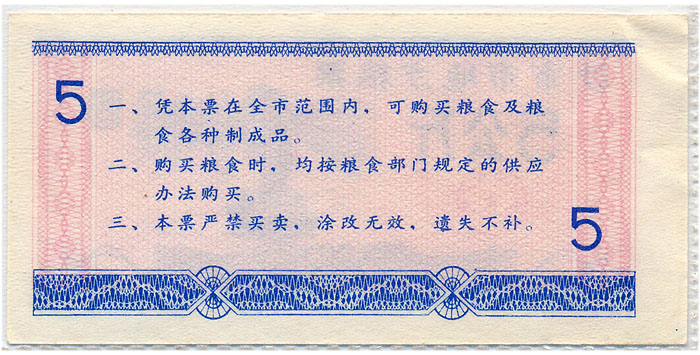 5
一、凭本票在全市范围内，可购买粮食及粮
食各种制成品。
二、购买粮食时，均按粮食部门规定的供应
办法购买。
三、本票严禁买卖，涂改无效，遗失不补。
5